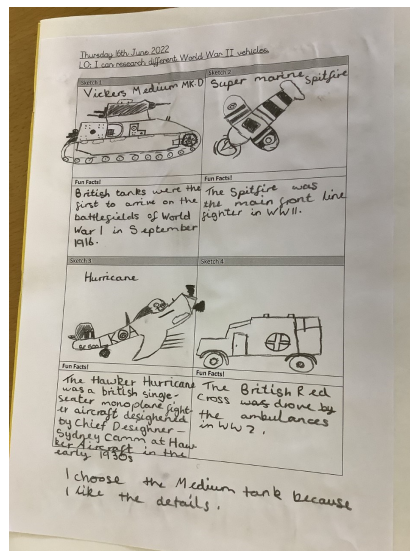 Thursday 16th June 2022
LO: I can research different World War II vehicles.
Sketch 1
Vickers Medium MK.D
Sketch 2
Super marine Spitfire
Fun Facts!
British tanks were the
first to arrive on the
battlefields of World
War 1 in September
1916.
Fun Facts!
The Spitfire was
the main front line
fighter in WW11.
Sketch 3
Hurricane
Sketch 4
Fun Facts!
The Hawker Hurricane
was a british singe-
seater monoplane fight-
er aircraft desighened
by Chief Desighner-
Sydney Camm at Haw
ker Aircraft in the
early 1930s
Fun Facts!
The British Red
Cross was drove by
the ambulances
in WW2.
I choose the Medium tank because
I like the details.